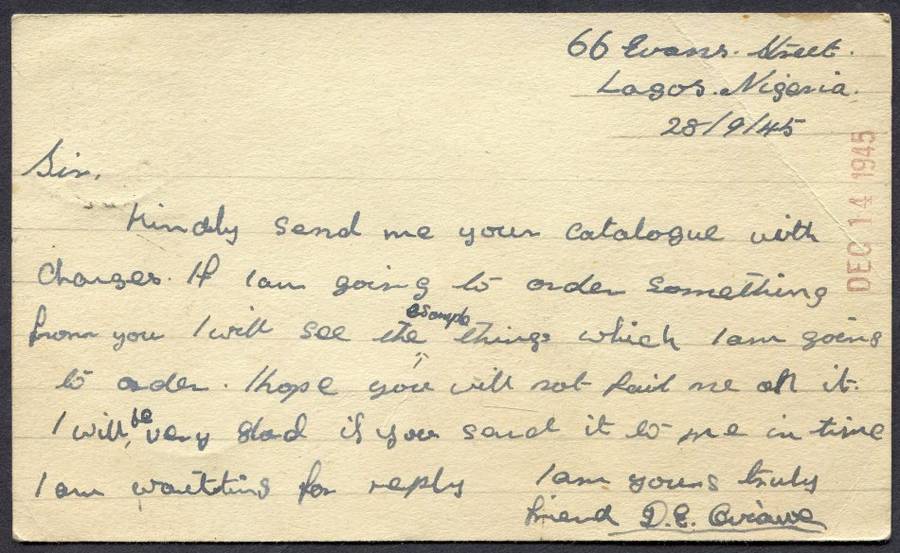 66 Evans. Street.
Lagos. Nigeria.
28/9/45
DEC 14 1945
Sir,
Kindly send me your catalogue with
Charges. If I am going to order something
from you I will see the esample things which I am going
to order. I hope you will not fail me on it.
I will, be very glad if you send it to me in time
I am waitting for reply I am yours truly
friend D.E.